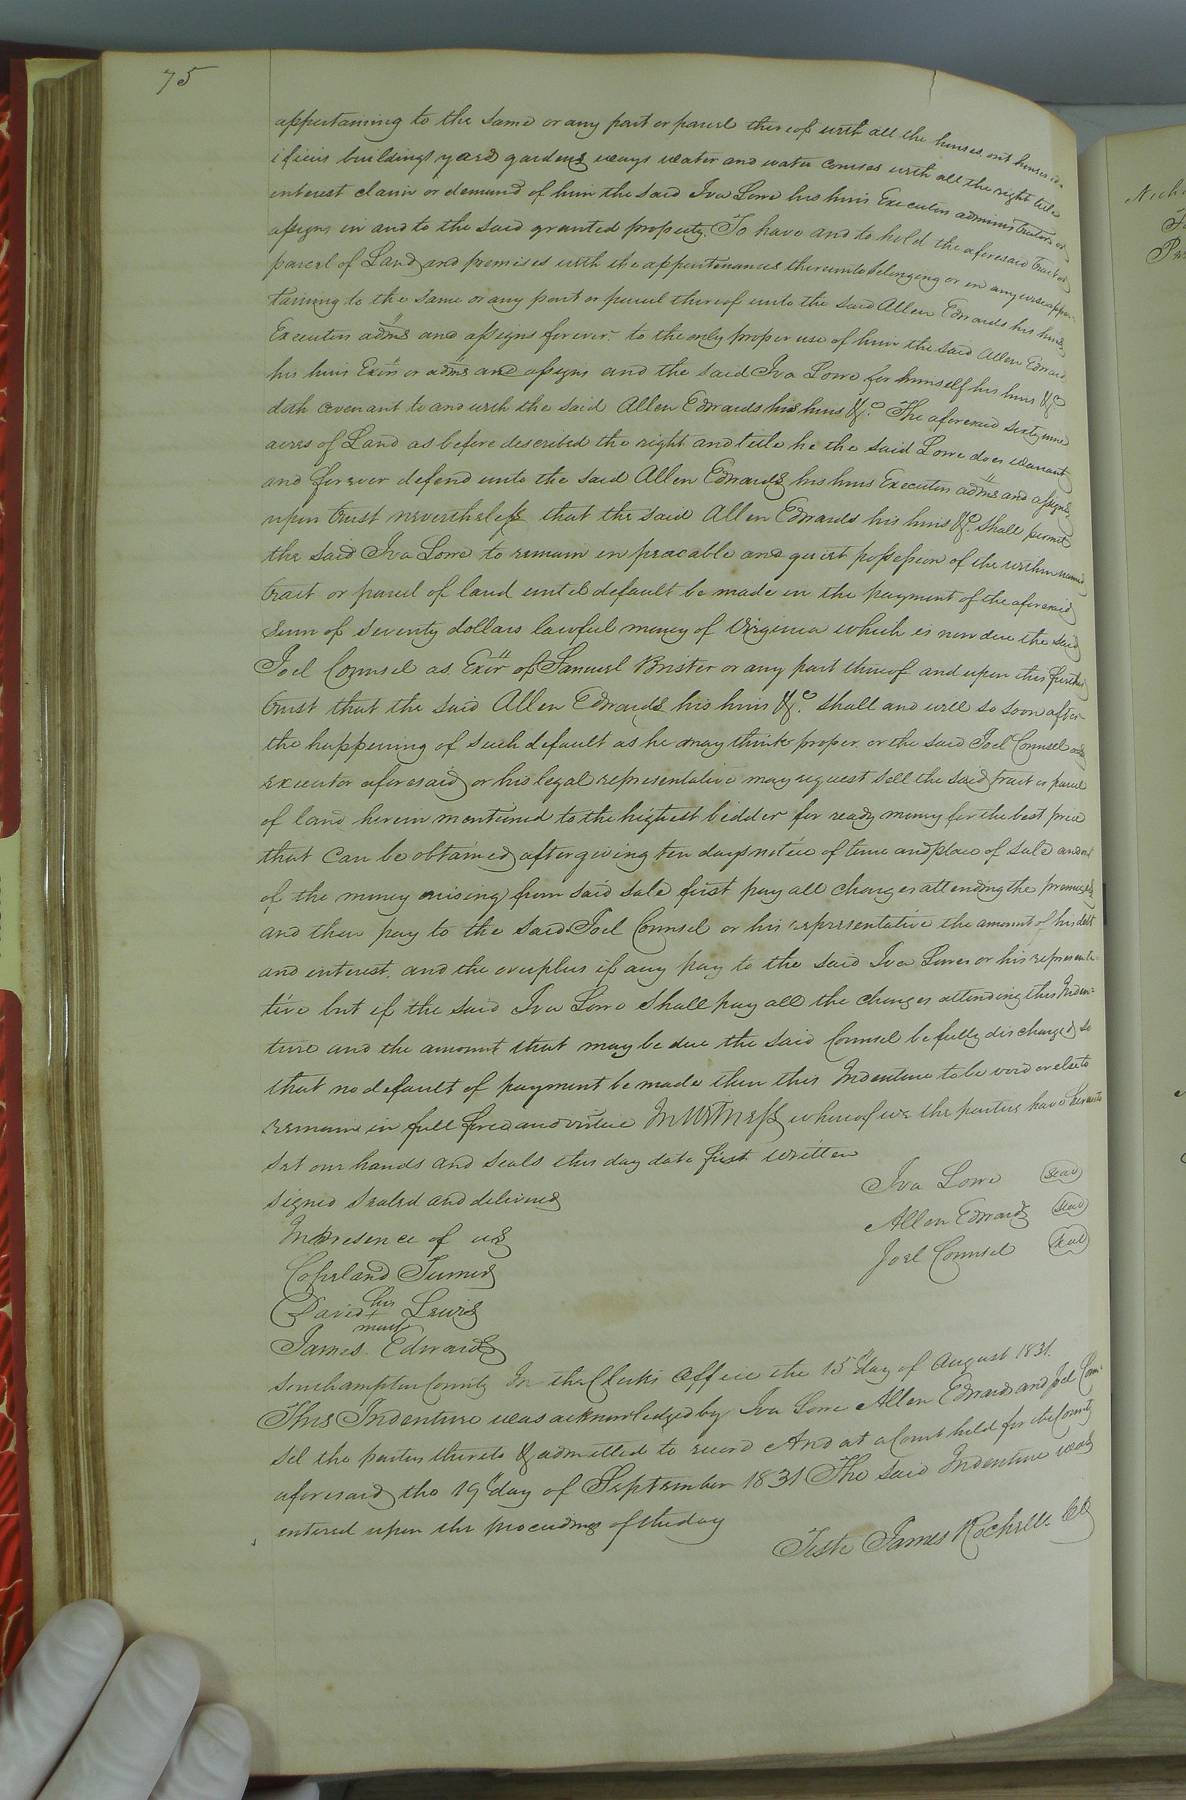 75
appertaining to the same or any part or parcel thereof with all the houses out houses ed-
ifices buildings yard gardens ways water and water courses with all the right title
interest claim or demand of him the said Iva Lowe his heirs Executors administrators or
assigns in and to the said granted property. To have and to hold the aforesaid tract or
parcel of Land and premises with the appurtenances thereunto belonging or in any wise apper-
taining to the same or any part or parcel thereof unto the said Allen Edwards his heirs
Executors adms and assigns forever to the only proper use of him the said Allen Edwards
his heirs Exrs or adms and assigns and the said Iva Lowe for himself his heirs &c
doth covenant to and with the said Allen Edwards his heirs &c. The aforesaid sixty nine
acres of Land as before described the right and title he the said Lowe does warrant
and forever defend unto the said Allen Edwards his heirs Executors adms and assigns
upon trust nevertheless that the said Allen Edwards his heirs &c. shall permit
the said Iva Lowe to remain in peacable and quiet possession of the within named
tract or parcel of land until default be made in the payment of the aforesaid
sum of seventy dollars lawful money of Virginia which is now due the said
Joel Counsel as Exr of Samuel Brister or any part thereof and upon this further
trust that the said Allen Edwards his heirs &c. shall and will so soon after
the happening of such default as he may think proper or the said Joel Counsel as
executor aforesaid or his legal representative may request sell the said tract or parcel
of land herein mentioned to the highest bidder for ready money for the best price
that can be obtained after giving ten days notice of time and place of sale and out
of the money arising from said sale first pay all charges attending the premises
and then pay to the said Joel Counsel or his representative the amount of his debt
and interest and the overplus if any pay to the said Iva Lowe or his representa-
tive but if the said Iva Lowe shall pay all the charges attending this Inden=
ture and the amount that may be due the said Counsel be fully discharged so
that no default of payment be made then this Indenture to be void or else to
remain in full force and virtue In Witness whereof we the parties have hereunto
set our hands and seals this day date first written
signed sealed and delivered Iva Lowe seal
In presence of us Allen Edwards seal
Copeland Turner Joel Counsel seal
David his Lewis
mark
James Edwards
Southampton County In the Clerk's office the 15th day of August 1831.
This Indenture was acknowledged by Iva Lowe Allen Edwards and Joel Coun-
sel the parties thereto & admitted to record And at a Court held for the County
aforesaid the 19th day of September 1831 The said Indenture was
entered upon the proceedings of the day
Teste James Rochelle CC